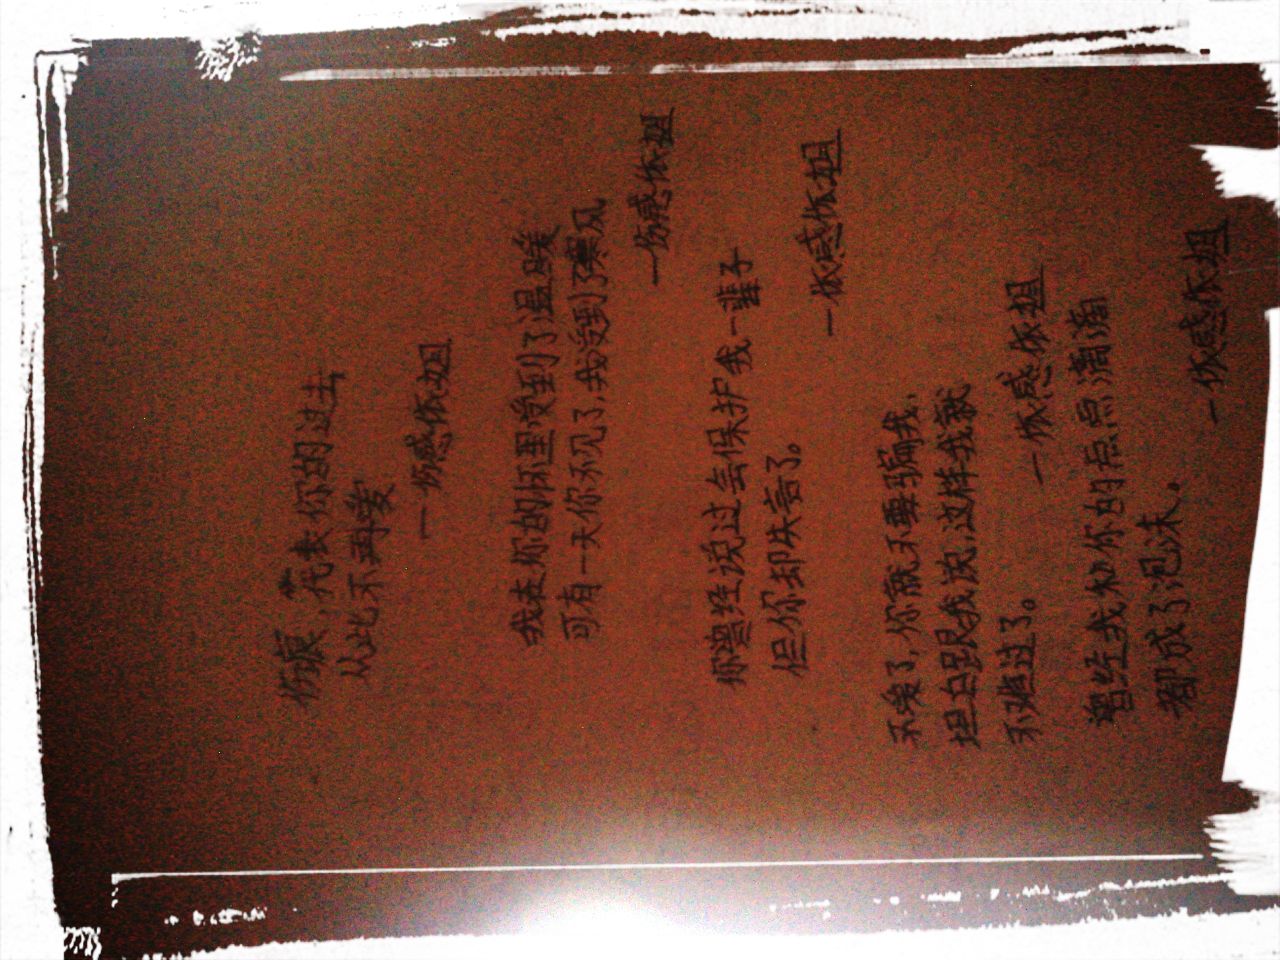 伤痕，代表你的过去
从此不再爱
—伤感依姐
我在你的怀里受到了温暖
可有一天你不见了，我受到了寒风
—伤感依姐
你曾经说过会保护我一辈子
但你却失言了。
—伤感依姐
不爱了，你就不要骗我，
坦白跟我说，这样我就
不难过了。
—伤感依姐
曾经我和你的点点滴滴
都成了泡沫。
—伤感依姐